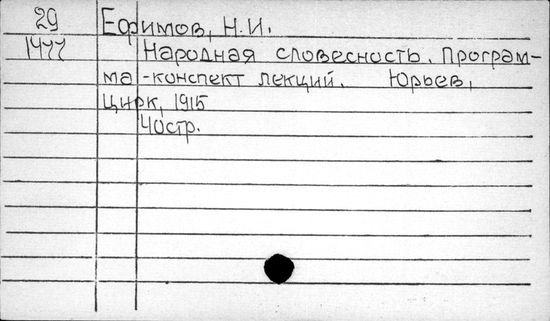 29 Ефимов, Н.И.
1477 Народная словесность. Програм-
ма-конспект лекций. Юрьев,
Цирк, 1915
40стр.